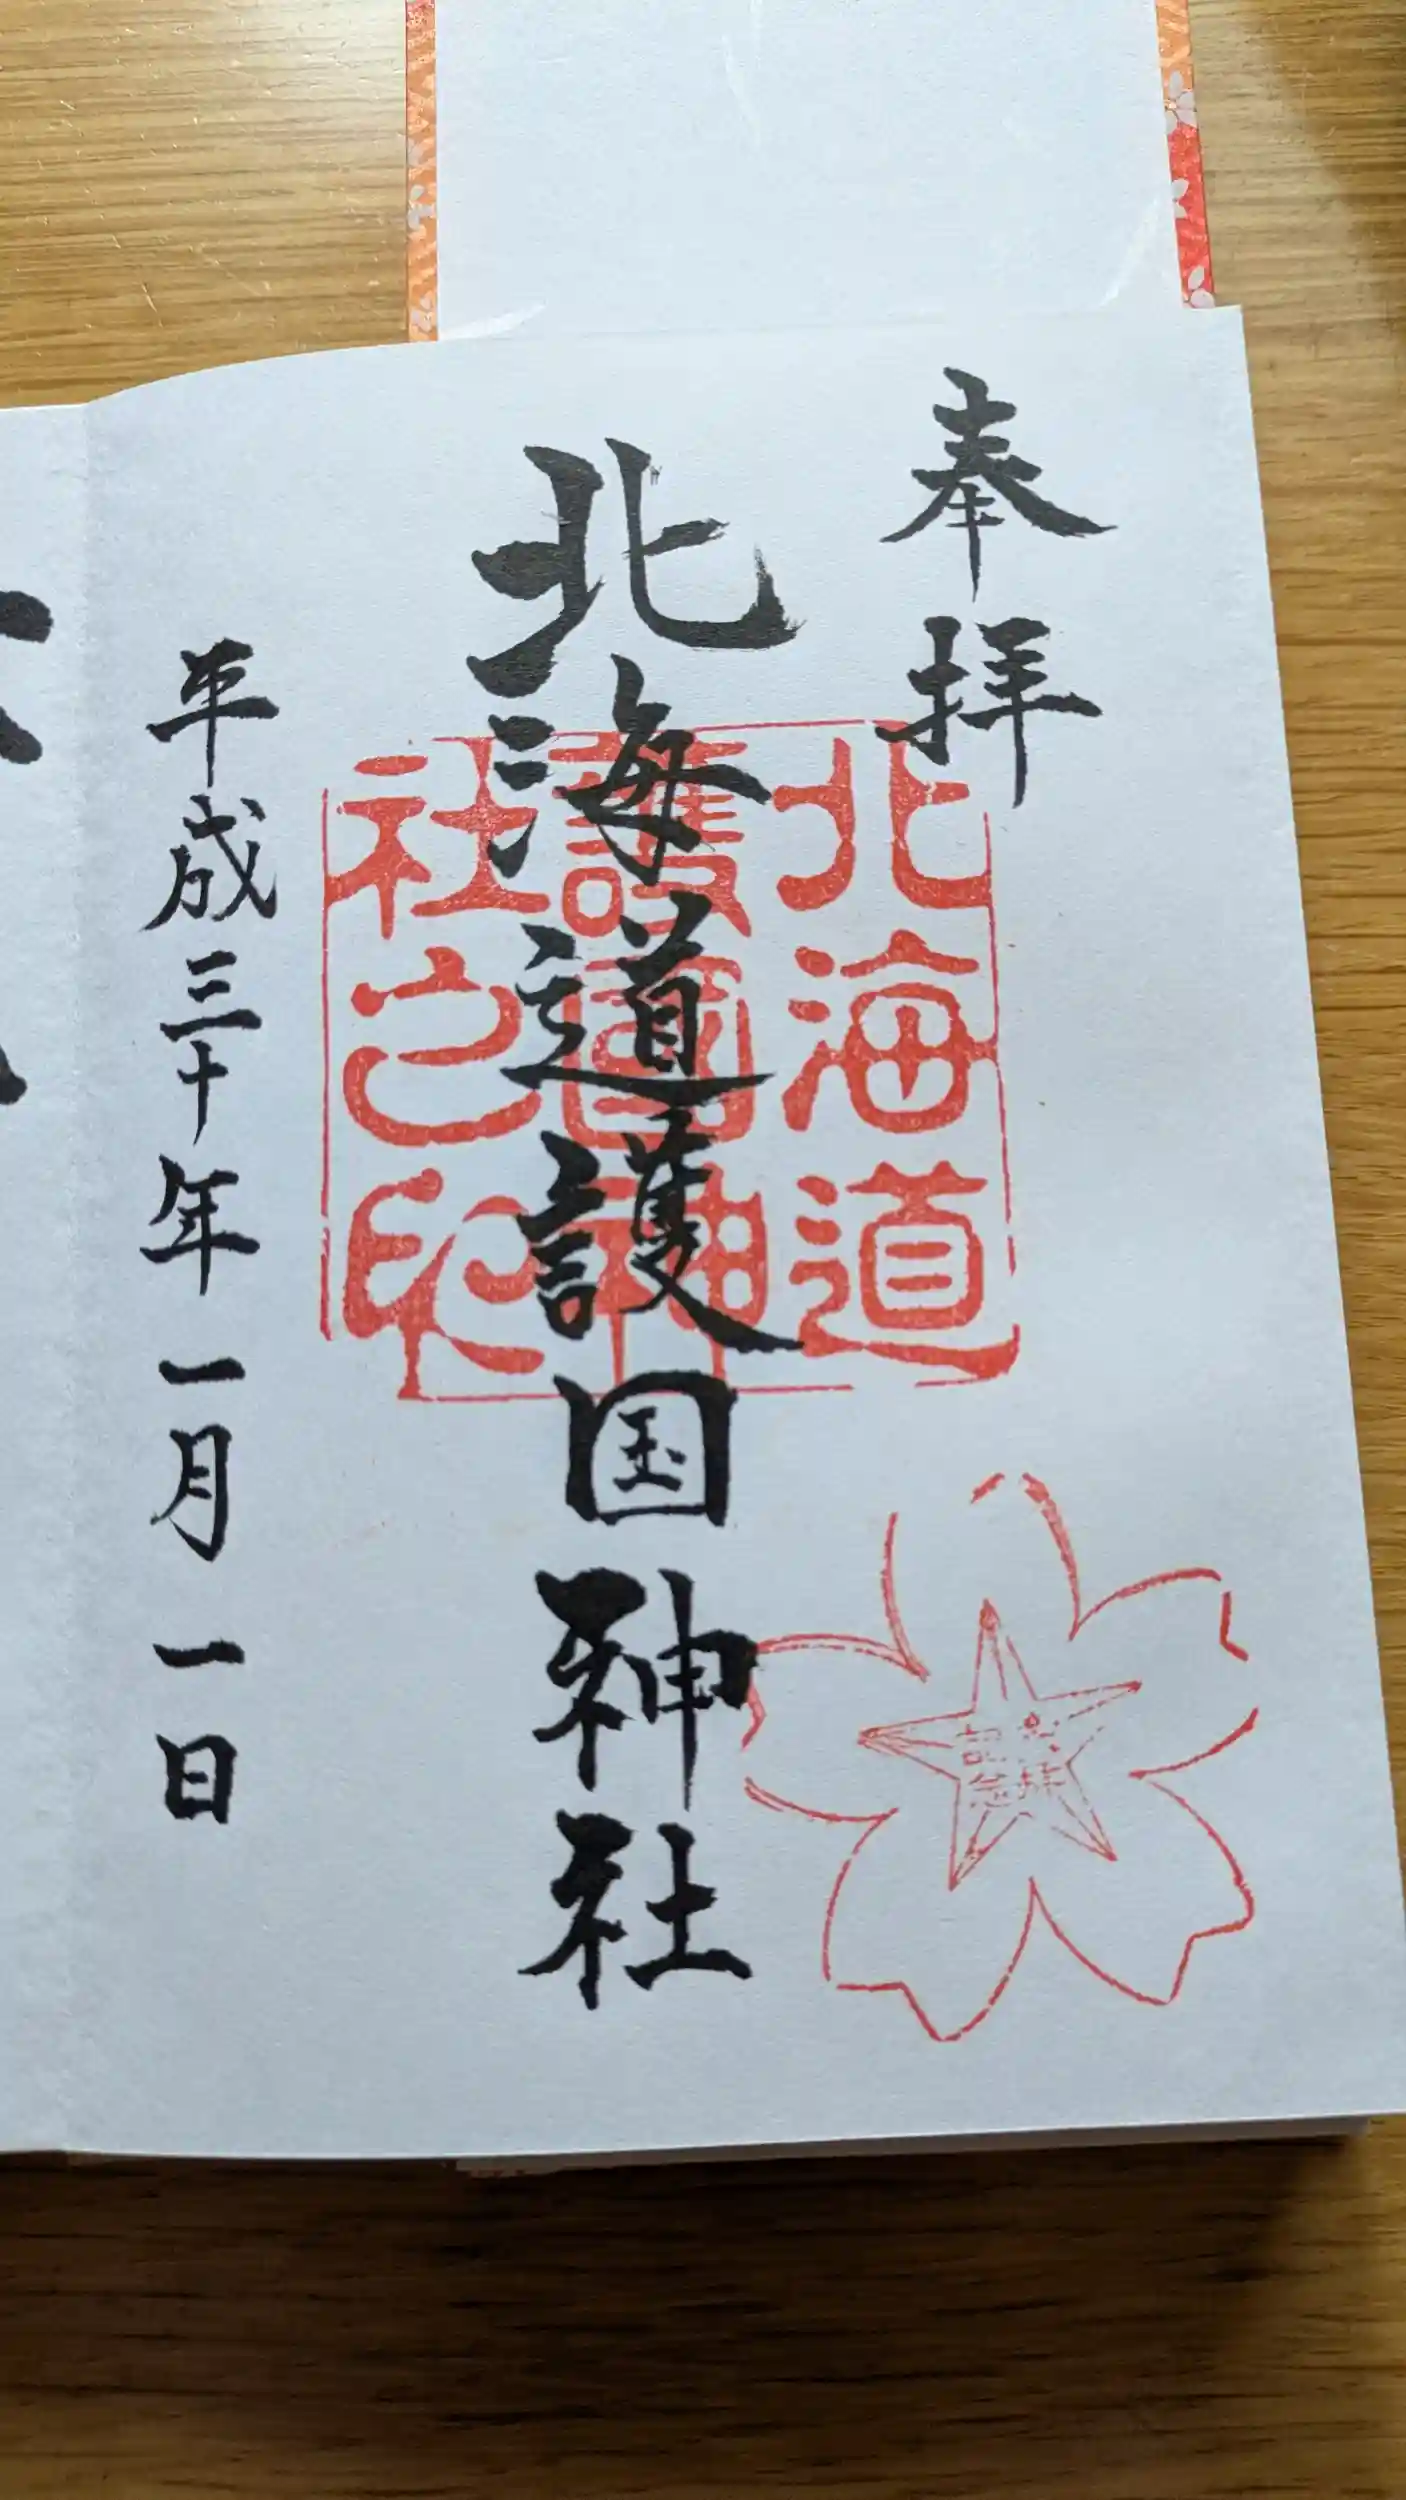 奉拝
北海道護国神社
平成三十年一月一日
北海道
護國神
社之印
参拝
記念